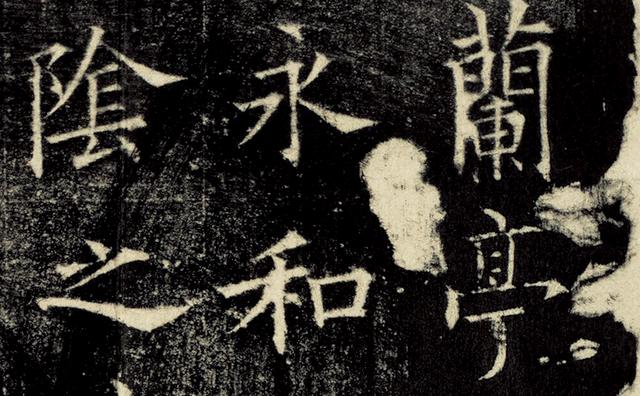 蘭亭
永和
陰之